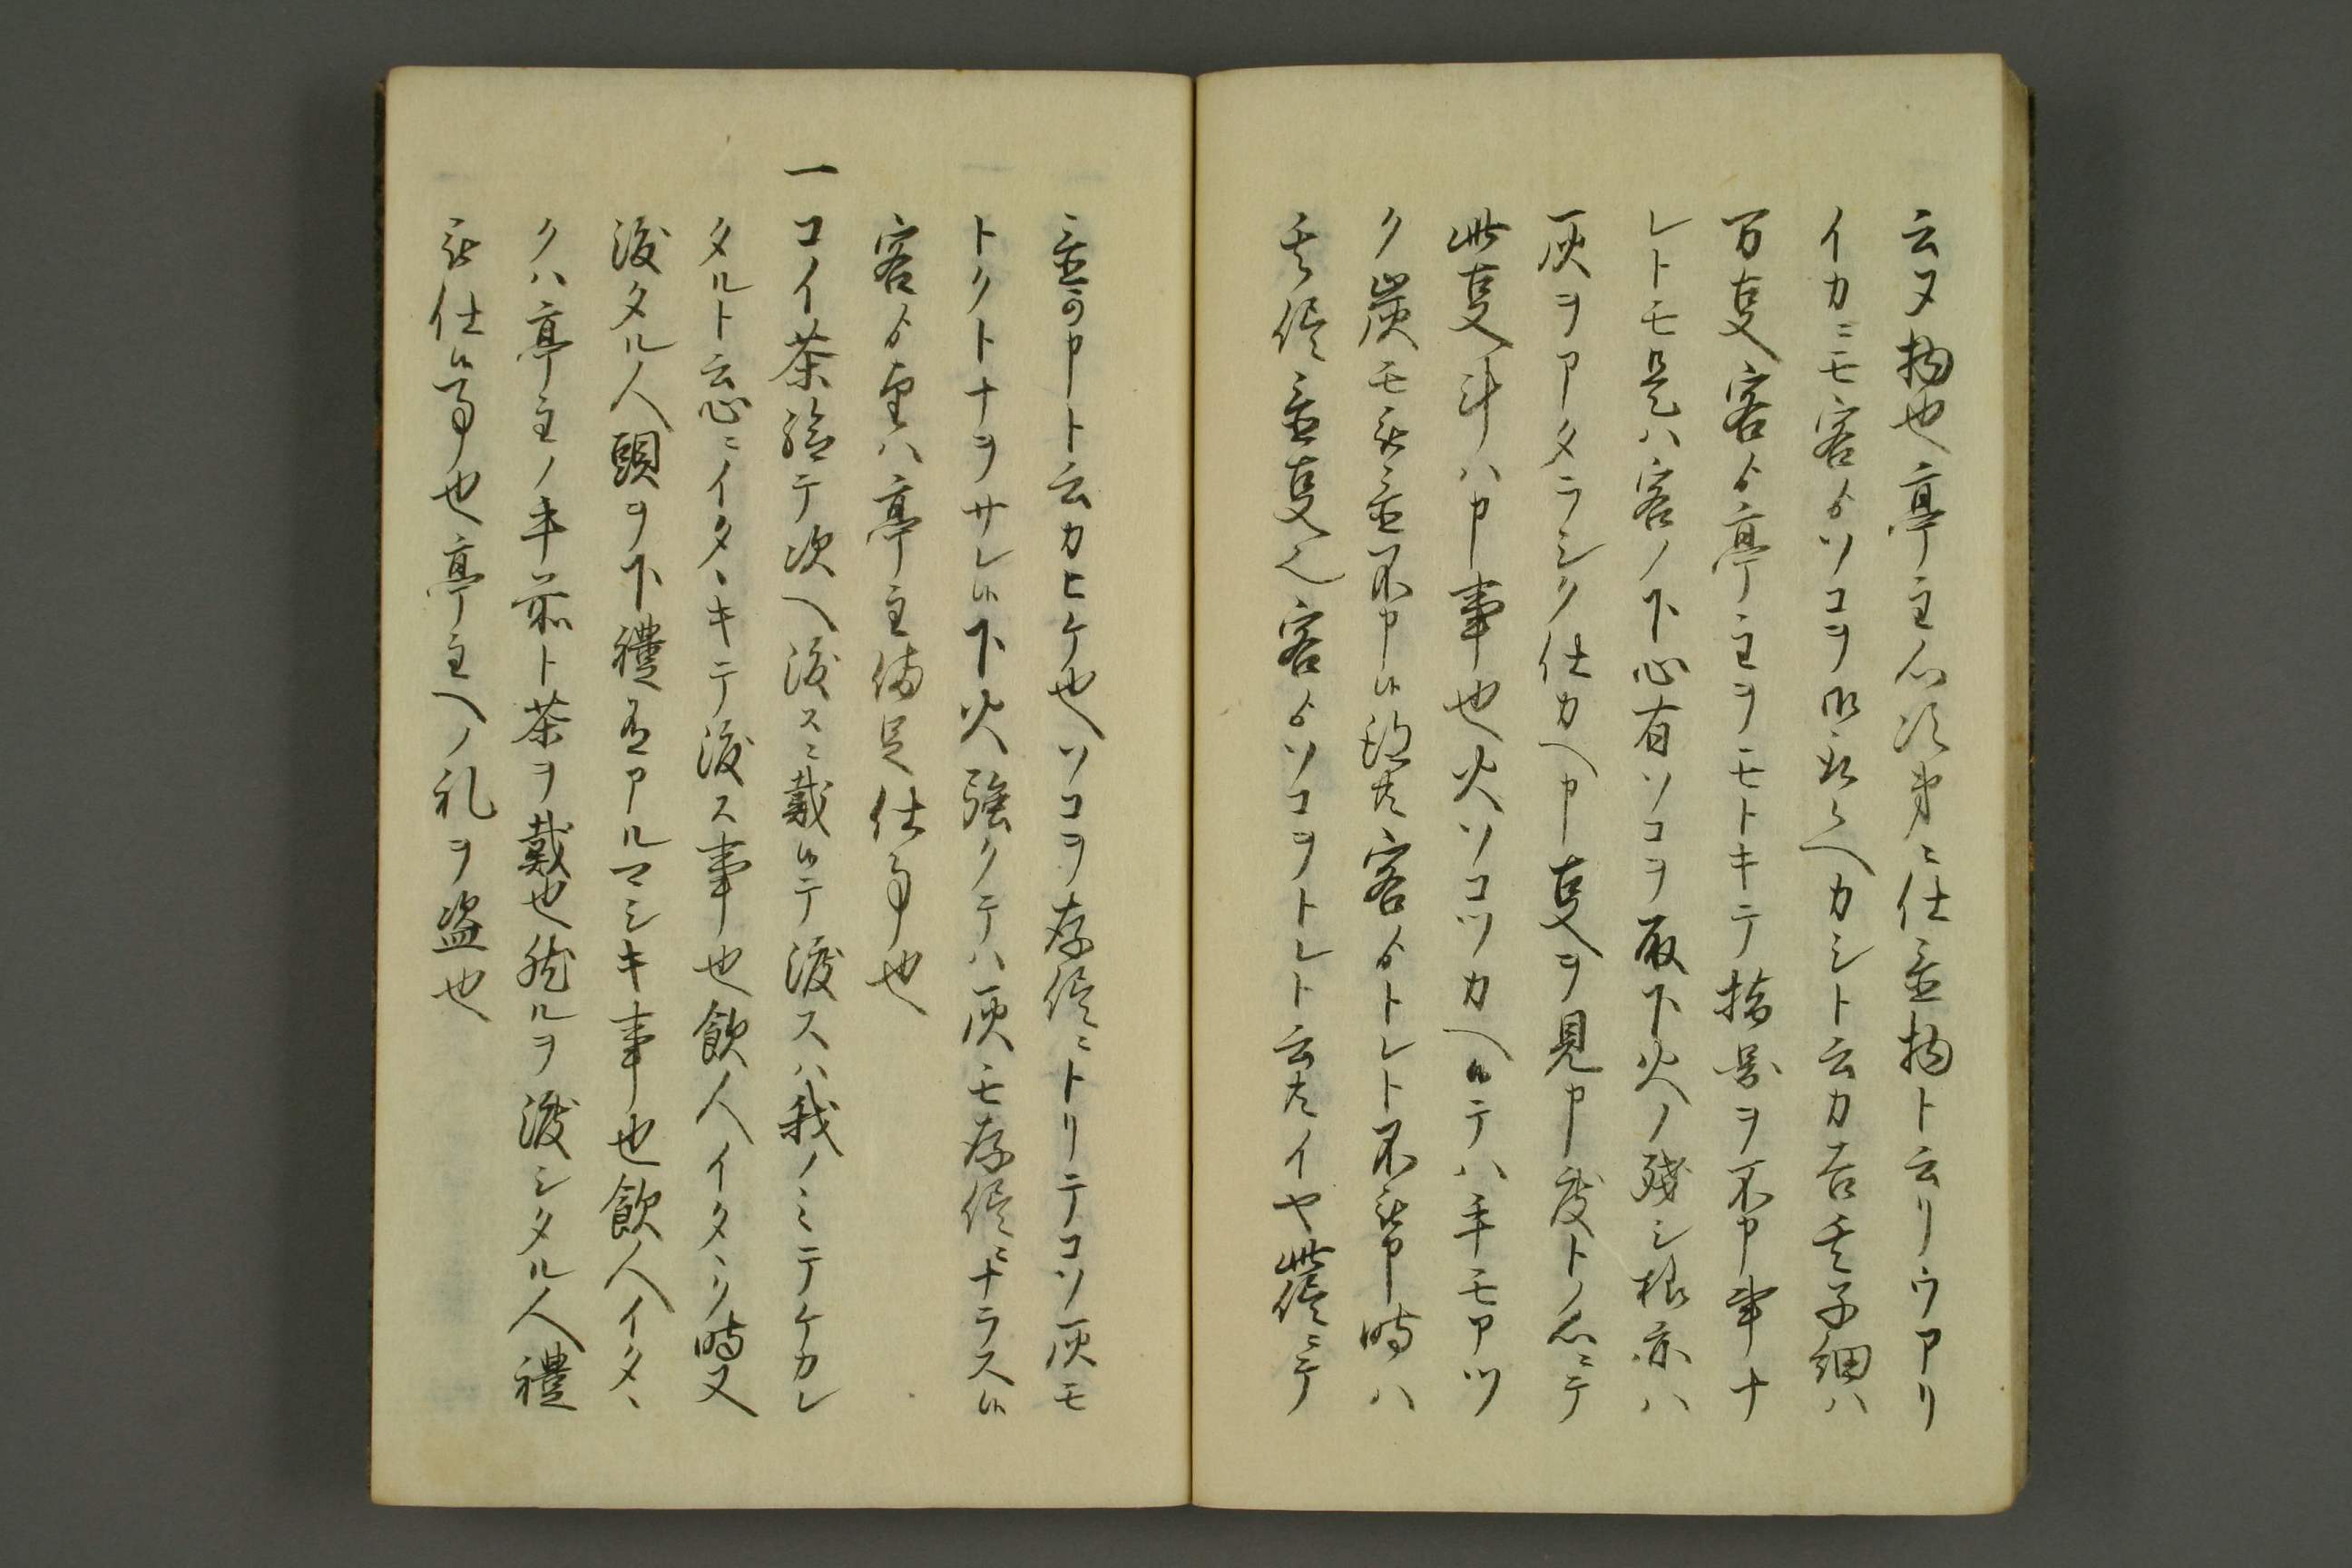 云ヌ物也亭主心次第ニ仕置物ト云リウアリ
イカニモ客ゟソコヲ御取候ヘカシト云カ吉其子細ハ
万事客ゟ亭主ヲモトキテ指図ヲ不申事ナ
レトモ是ハ客ノ下心有ソコヲ取下火ノ残シ様亦ハ
灰ヲアタラシク仕カヘ申事ヲ見申度トノ心ニテ
此事斗ハ申事也火ソコツカヘ候テハ手モアツ
ク炭モ被置不申候故客ゟトレト不被申時ハ
其儘置事也客ゟソコヲトレト云共イヤ此儘ニテ
置可申ト云カヒケ也ソコヲ存儘ニトリテコソ灰モ
トクトナヲサレ候下火強クテハ灰モ存儘ニナラス候
客ゟ望ハ亭主満足仕事也
一コイ茶給テ次ヘ渡スニ戴候テ渡スハ我ノミテケカレ
タルト云心ニイタヽキテ渡ス事也飲人イタヽク時又
渡タル人頭ヲ下禮有アルマシキ事也飲人イタヽ
クハ亭主ノ手前ト茶ヲ戴也然ルヲ渡シタル人禮
被仕候事也亭主ヘノ礼ヲ盗也